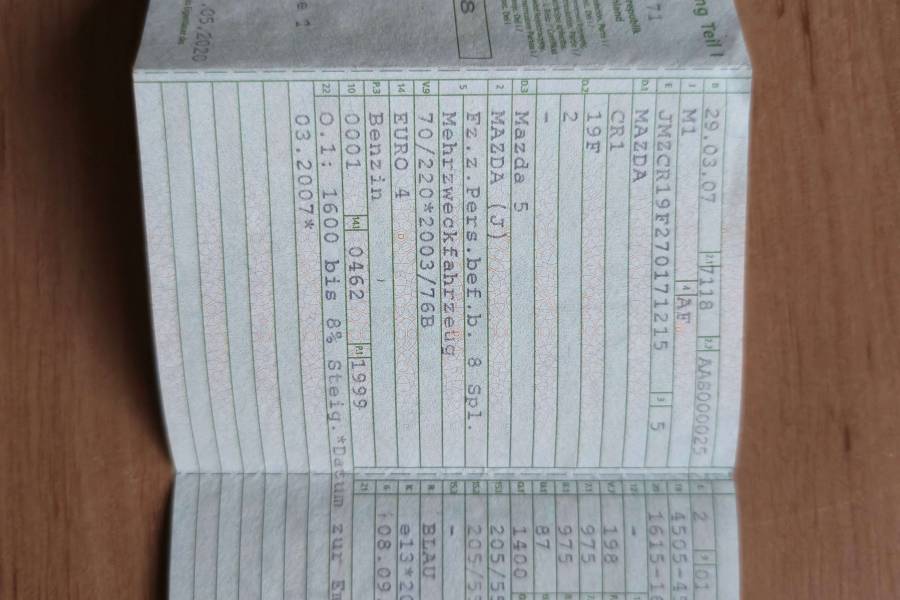 ng Teil I
71
8
e 1
.05.2020
B 29.03.07 2.1 7118 2.2 AAS000025
J M1 4 AF
E JMZCR19F270171215 3 5
D.1 MAZDA
CR1
D.2 19F
2
-
D.3 Mazda 5
2 MAZDA (J)
5 Fz.z.Pers.bef.b. 8 Spl.
Mehrzweckfahrzeug
V.9 70/220*2003/76B
14 EURO 4
P.3 Benzin
10 0001 14.1 0462 P.1 1999
22 O.1: 1600 bis 8% Steig.*Datum zur Em
03.2007*
L 2 9 01
18 4505-4
20 1615-1
12 -
V.7 198
7.1 975
8.1 975
U.1 87
O.1 1400
15.1 205/55
15.2 205/5
15.3 -
R BLAU
K e13*20
6 08.09.
21